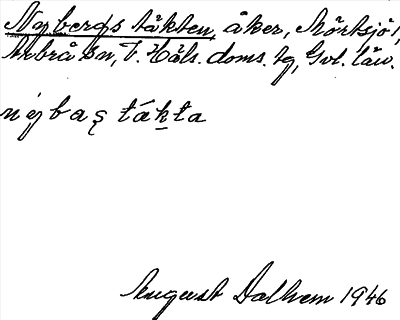 Nybergs täkten, åker, Mörtsjö,
Arbrå sn, V. Häls. doms. tg, Gvl. län.
nybaş tákta
August Dalhem 1946